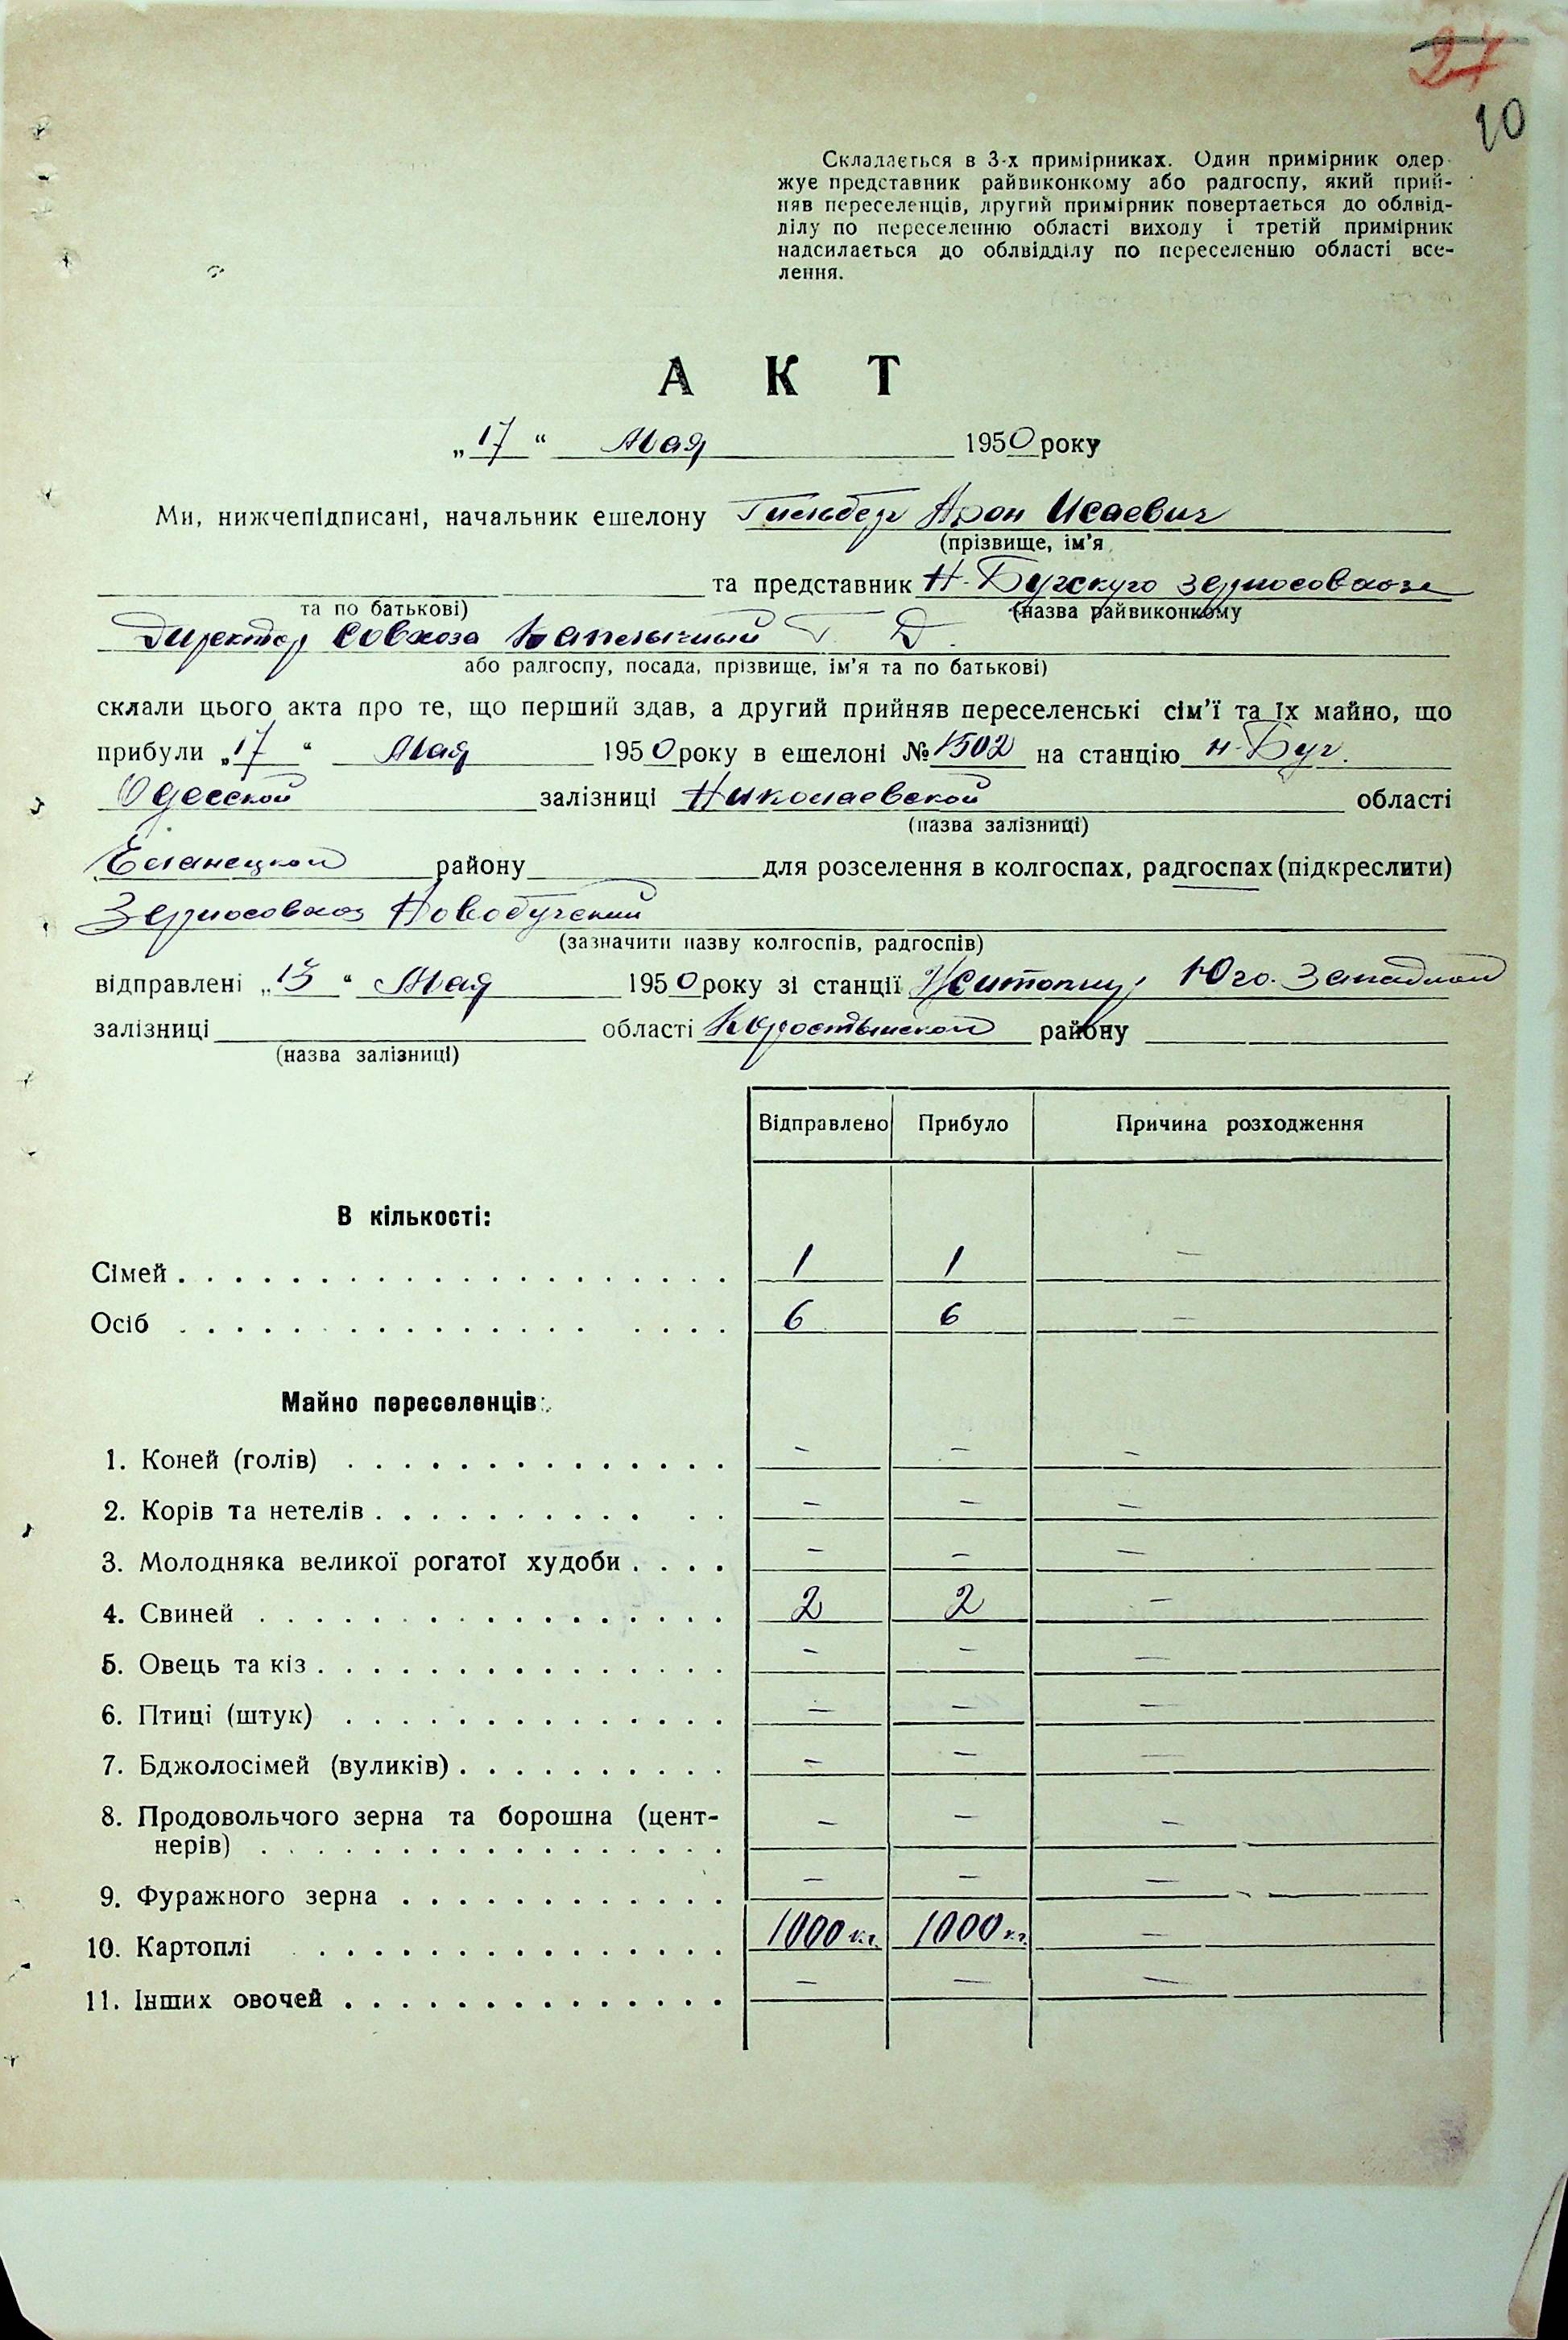 27
10
Складається в 3-х примірниках. Один примірник одер-
жує представник райвиконкому або радгоспу, який прий-
няв переселенців, другий примірник повертається до облвід-
ділу по переселенню області виходу і третій примірник
надсилається до облвідділу по переселенню області все-
лення.
А К Т
„17“ Мая 1950 року
Ми, нижчепідписані, начальник ешелону Гильберг Арон Исаевич
(прізвище, ім'я
та представник Н-Бугскуго зерносовхоза
та по батькові) (назва райвиконкому
Директор совхоза Капельчиный Г Д.
або радгоспу, посада, прізвище, ім'я та по батькові)
склали цього акта про те, що перший здав, а другий прийняв переселенські сім'ї та їх майно, що
прибули „17“ Мая 1950 року в ешелоні № 1502 на станцію Н-Буг.
Одесской залізниці Николаевской області
(назва залізниці)
Еланецкой району для розселення в колгоспах, радгоспах (підкреслити)
Зерносовхоз Новобугский
(зазначити назву колгоспів, радгоспів)
відправлені „13“ Мая 1950 року зі станції Житомир, Юго. Западной
залізниці області Коростышской району
(назва залізниці)
Відправлено Прибуло Причина розходження
В кількості:
Сімей 1 1 —
Осіб 6 6 —
Майно переселенців:
1. Коней (голів) — — —
2. Корів та нетелів — — —
3. Молодняка великої рогатої худоби — — —
4. Свиней 2 2 —
5. Овець та кіз — — —
6. Птиці (штук) — — —
7. Бджолосімей (вуликів) — — —
8. Продовольчого зерна та борошна (цент-
нерів) — — —
9. Фуражного зерна — — —
10. Картоплі 1000 кг. 1000 кг. —
11. Інших овочей — — —